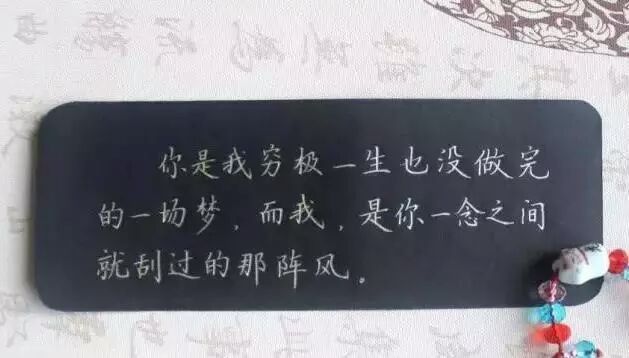 你是我穷极一生也没做完
的一场梦，而我，是你一念之间
就刮过的那阵风。